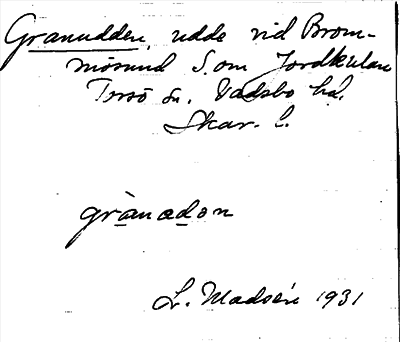 Granudden, udde vid Brom-
mösund S.om Jordkulan
Torsö sn. Vadsbo hd.
Skar. l.
grànadon
L. Madsén 1931